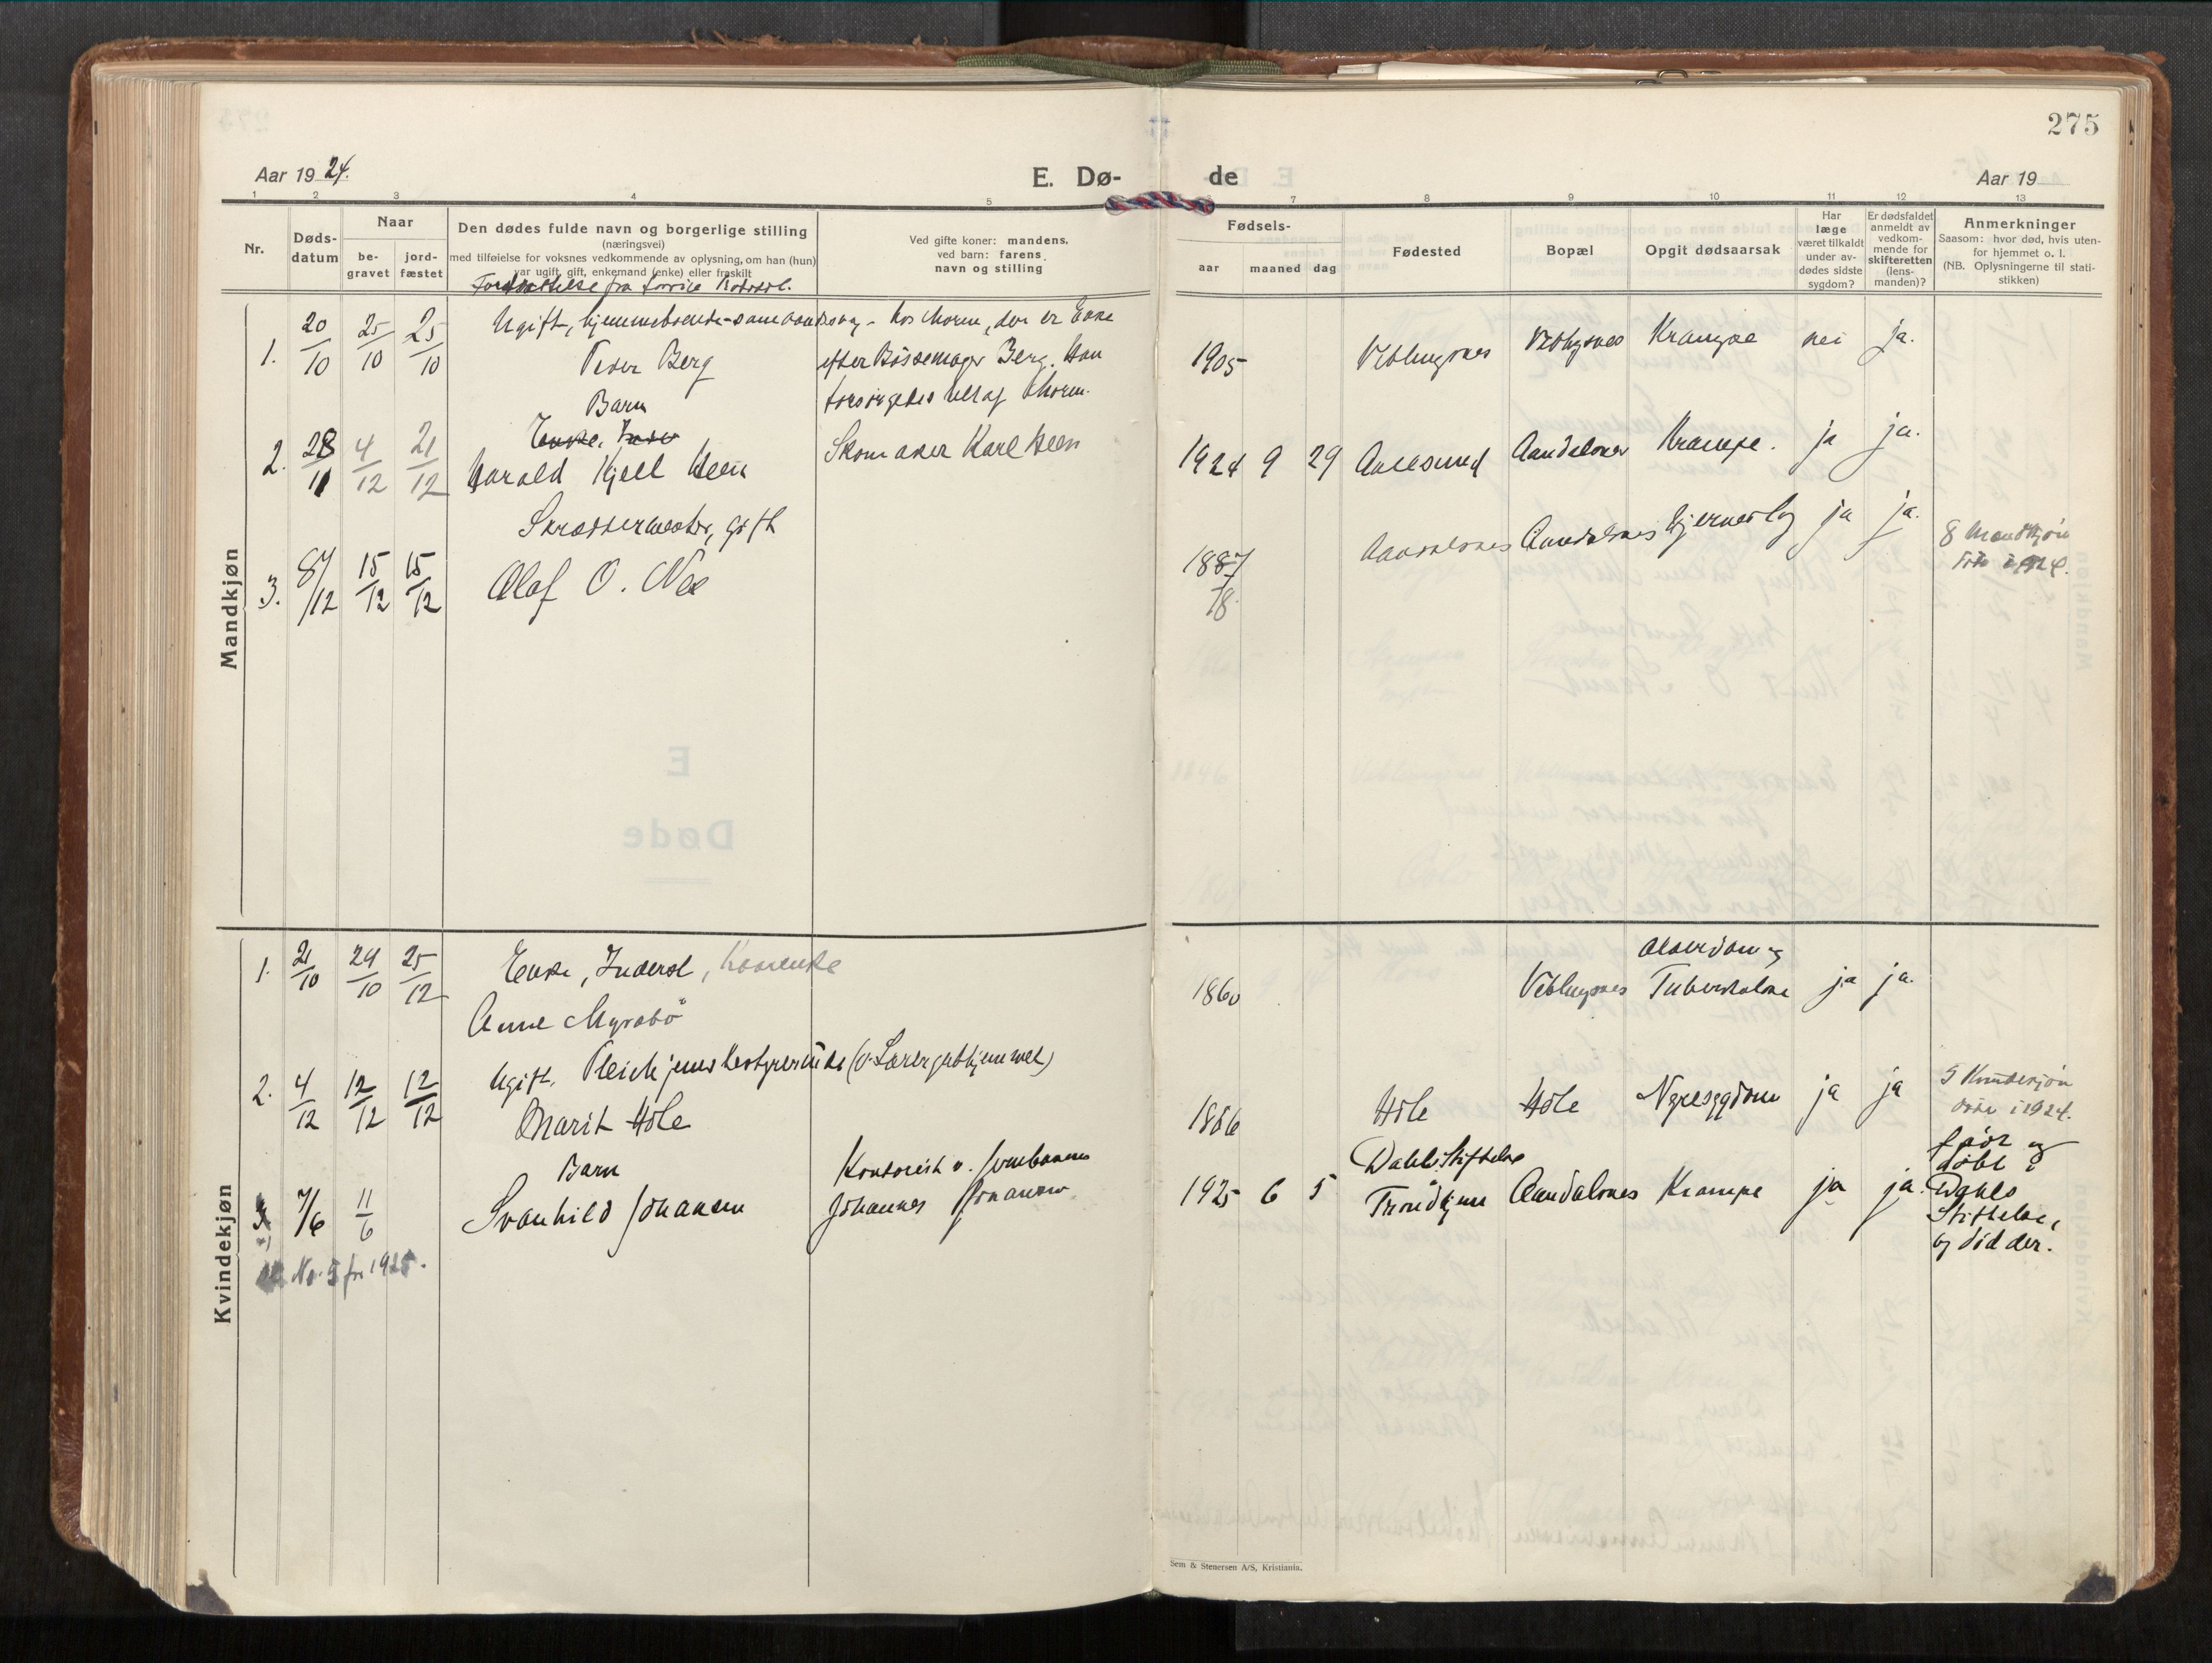 275
Aar 1924.
E. Dø-
de
Aar 19
1 2 3 4 5
7 8 9 10 11 12 13
Nr.
Døds-
datum
Naar
be-
gravet
jord-
fæstet
Den dødes fulde navn og borgerlige stilling
(næringsvei)
med tilføielse for voksnes vedkommende av oplysning, om han (hun)
var ugift, gift, enkemand (enke) eller fraskilt
Ved gifte koner: mandens,
ved barn: farens
navn og stilling
Fødsels-
aar maaned dag
Fødested
Bopæl
Opgit dødsaarsak
Har
læge
været tilkaldt
under av-
dødes sidste
sygdom?
Er dødsfaldet
anmeldt av
vedkom-
mende for
skifteretten
(lens-
manden)?
Anmerkninger
Saasom: hvor død, hvis uten-
for hjemmet o. l.
(NB. Oplysningerne til stati-
stikken)
Fortsættelse fra forrige
Mandkjøn
Ugift, hjemmeboende - hos Moren, der er Enke
1. 20/10 25/10 25/10 Peder Berg efter Bössemager Berg. Han 1905 Veblungsnes Veblungsnes Krampe nei ja.
forsörgedes helt af Moren.
Barn
Enke,
2. 28/11 4/12 21/12 Harald Kjell Heen Skomaker Karl Heen 1924 9 29 Aalesund Aandalsnes Krampe. ja ja.
Skræddermester, gift
3. 8/12 15/12 15/12 Olaf O. Næs 1887 Aandalsnes Aandalsnes ja ja. 8 Mandkjøn
döde i 1924.
18
Kvindekjøn
1. 21/10 24/10 25/12 Enke, Inderst, 1860 Veblungsnes Tuberkulose ja ja.
Anne Myrabö
Ugift. Pleiehjemsbestyrerinde
2. 4/12 12/12 12/12 Marit Hole 1866 Hole Hole Nyresygdom ja ja 5 Kvindekjøn
döde i 1924.
Barn Kontorist v. Jernbanen Dahls Stiftelse
7/6 11/6 Svanhild Johansen Johannes Johansen 1925 6 5 Trondhjem Aandalsnes Krampe ja ja. Född og
döbt i
Dahls
Stiftelse,
og död der.
No. 5 for 1925.
E
Døde
Sem & Stenersen A/S, Kristiania.